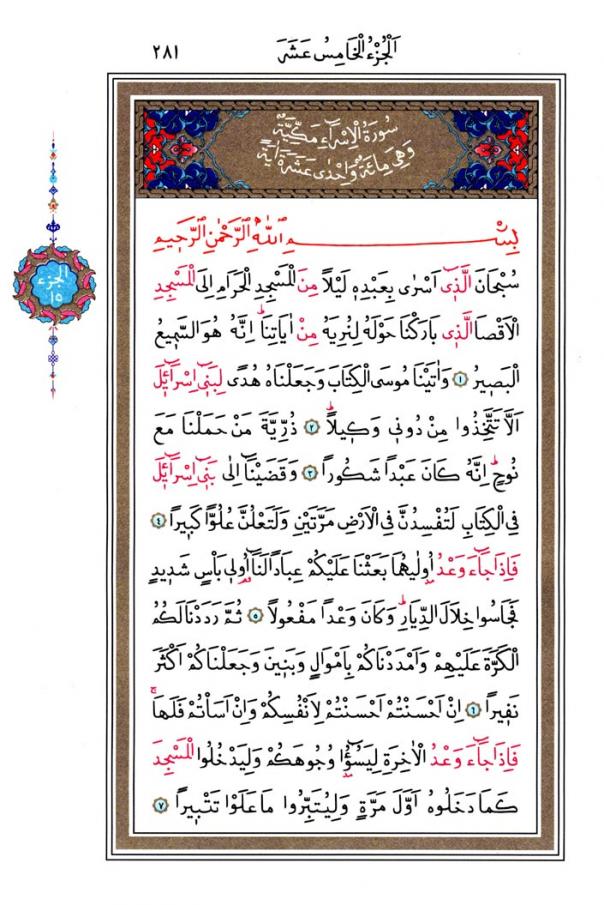 اَلْجُزْءُ الْخَامِسُ عَشَرَ
٢٨١
سُورَةُ الْاِسْرَٓاءِ مَكِّيَّةٌ
وَهِيَ مِائَةٌ وَاِحْدٰى عَشْرَةَ اٰيَةً
بِسْمِ اللّٰهِ الرَّحْمٰنِ الرَّحٖيمِ
سُبْحَانَ الَّذٖٓى اَسْرٰى بِعَبْدِهٖ لَيْلاً مِنَ الْمَسْجِدِ الْحَرَامِ اِلَى الْمَسْجِدِ
الْاَقْصَا الَّذٖى بَارَكْنَا حَوْلَهُ لِنُرِيَهُ مِنْ اٰيَاتِنَاؕ اِنَّهُ هُوَ السَّمٖيعُ
الْبَصٖيرُ ﴿١﴾ وَاٰتَيْنَا مُوسَى الْكِتَابَ وَجَعَلْنَاهُ هُدًى لِبَنٖٓى اِسْرَٓائٖلَ
اَلَّا تَتَّخِذُوا مِنْ دُونٖى وَكٖيلاًؕ ﴿٢﴾ ذُرِّيَّةَ مَنْ حَمَلْنَا مَعَ
نُوحٍؕ اِنَّهُ كَانَ عَبْداً شَكُوراً ﴿٣﴾ وَقَضَيْنَٓا اِلٰى بَنٖٓى اِسْرَٓائٖلَ
فِى الْكِتَابِ لَتُفْسِدُنَّ فِى الْاَرْضِ مَرَّتَيْنِ وَلَتَعْلُنَّ عُلُوًّا كَبٖيراً ﴿٤﴾
فَاِذَا جَٓاءَ وَعْدُ اُو۫لٰيهُمَا بَعَثْنَا عَلَيْكُمْ عِبَاداً لَنَٓا اُو۬لٖى بَأْسٍ شَدٖيدٍ
فَجَاسُوا خِلَالَ الدِّيَارِؕ وَكَانَ وَعْداً مَفْعُولاً ﴿٥﴾ ثُمَّ رَدَدْنَا لَكُمُ
الْكَرَّةَ عَلَيْهِمْ وَاَمْدَدْنَاكُمْ بِاَمْوَالٍ وَبَنٖينَ وَجَعَلْنَاكُمْ اَكْثَرَ
نَفٖيراً ﴿٦﴾ اِنْ اَحْسَنْتُمْ اَحْسَنْتُمْ لِاَنْفُسِكُمْ وَاِنْ اَسَأْتُمْ فَلَهَاؕ
فَاِذَا جَٓاءَ وَعْدُ الْاٰخِرَةِ لِيَسُٓؤُ۫ا وُجُوهَكُمْ وَلِيَدْخُلُوا الْمَسْجِدَ
كَمَا دَخَلُوهُ اَوَّلَ مَرَّةٍ وَلِيُتَبِّرُوا مَا عَلَوْا تَتْبٖيراً ﴿٧﴾
الجزء
١٥